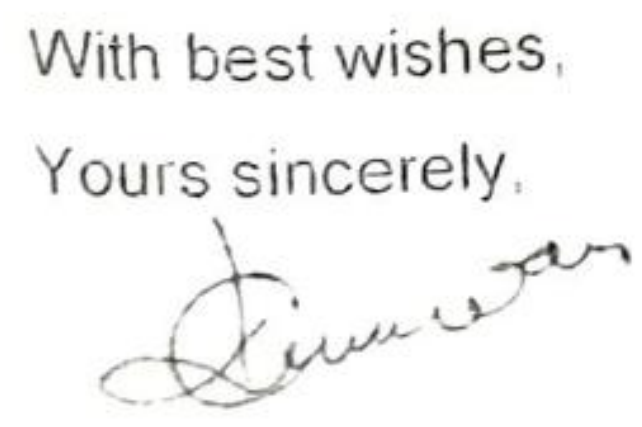 With best wishes,
Yours sincerely,